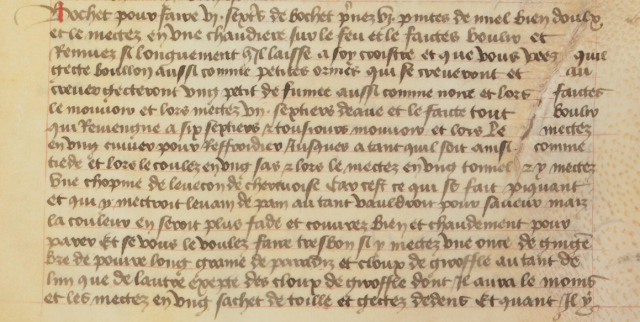 Bochet pour faire vj. septrs de bochet prnez vj pintes de miel bien doulx
et le mectez en une chaudiere sur le feu et le faictes boulir et
Remuez si longuement qil laisse a soy croistre et que vous veez quil
gecte boullon aussi comme petites ormes qui se creveront et au
crever gecteront ung petit de fumee aussi comme noire et lors faictes
le mouvoir et lors mectez vij. septiers deaue et le faicte tout boulir
qui Reviengne a six septiers & tousiours mouvoir et lors le mectez
en ung cuvier pour Reffroidier Jusques a tant quil soit ainsi comme
tiede et lors le coulez en ung sas & lors le mectez en ung tonnel & y mectez
une chopine de leveçon de cervoise Car cest ce qui se fait piquant
et qui y mectroit levain de pain autant vauldroit pour saveur maiz
la couleur en seroit plus fade et couvrez bien et chaudement pour
parer Et se vous le voulez faire tresbon si y mectez une once de gingēbre
de poivre long graine de paradiz et cloup de girofle autant de
lun que de lautre excepte des cloup de giroffle dont Il aura le moins
et les mectez en ung sachet de toille et gectez dedens Et quant Il y